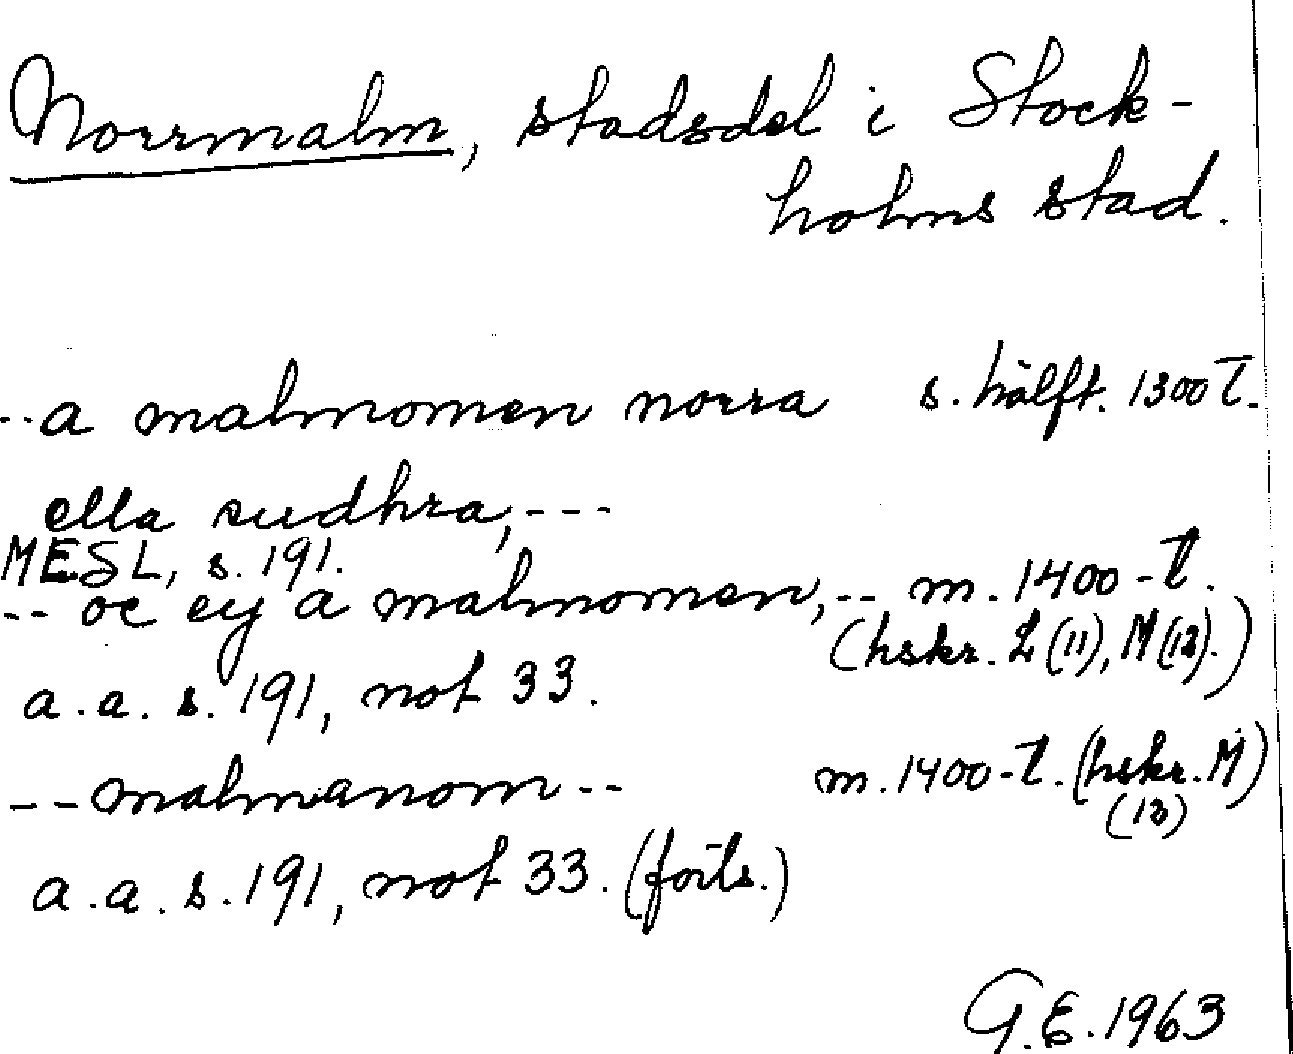 Norrmalm, stadsdel i Stock-
holms stad.
--a malmomen norra s. hälft. 1300 t.
ella sudhra, ---
MESL, s. 191.
-- oc ey a malmomen, -- m. 1400-t.
(hskr. L (11), M (13).)
a.a. s. 191, not 33.
--malmanom-- m. 1400-t. (hskr. M)
(13)
a.a. s. 191, not 33. (forts.)
G.E. 1963